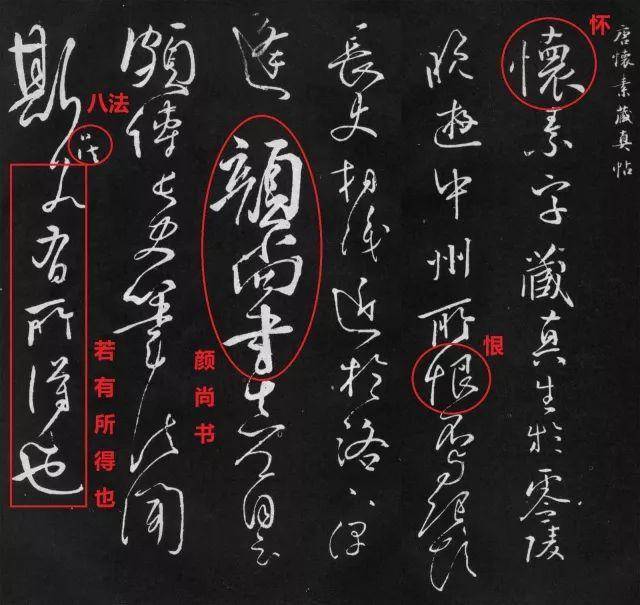 唐懷素藏真帖
懷素字藏真生於零陵
怀
晚遊中州所恨不與張顛
恨
長史相識近於洛下偶
逢顏尚書真卿自云
颜尚书
頗傳長史筆法聞
斯八法若有所得也
八法
若有所得也